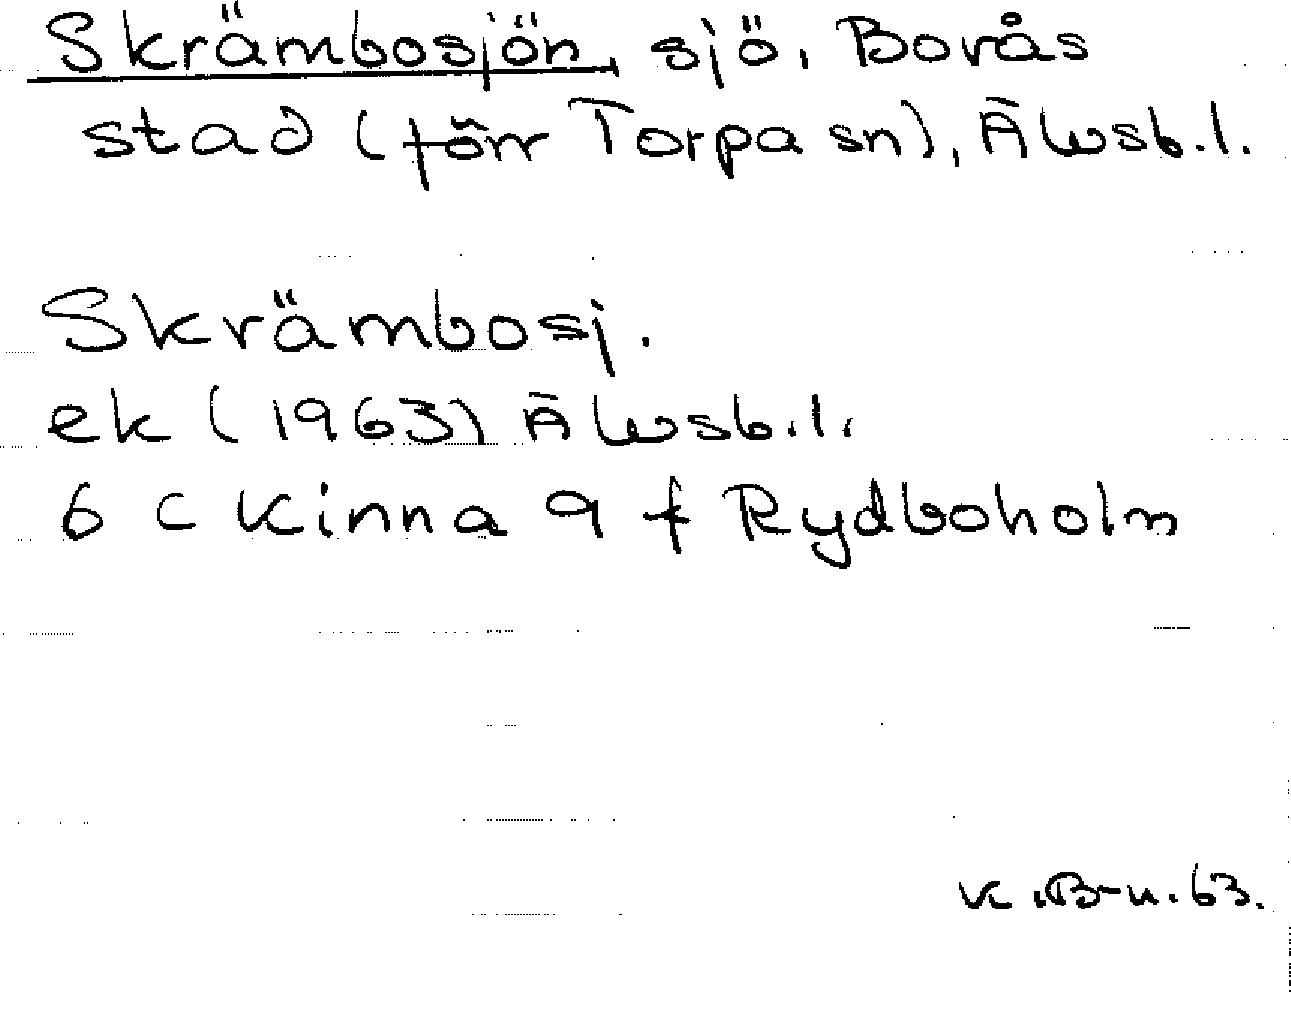 Skrämbosjön, sjö, Borås
stad (förr Torpa sn), Älvsb.l.
Skrämbosj.
ek (1963) Älvsb.l.
6 C Kinna 9 f Rydboholm
K.B-n.63.